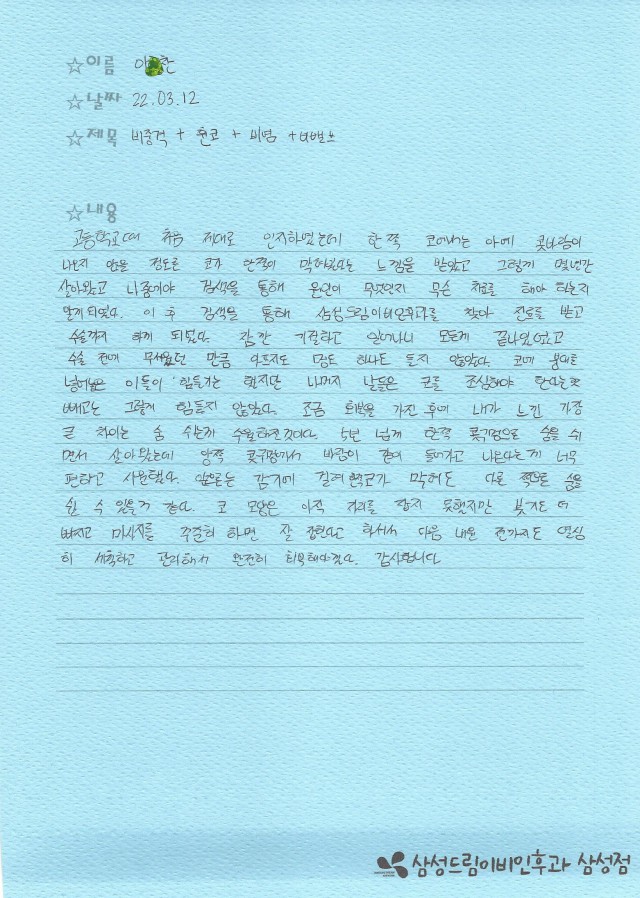 ☆이름 이 찬
☆날짜 22.03.12
☆제목 비중격 + 휜코 + 비염 + 비밸브
☆내용
고등학교때 처음 제대로 인지하였는데 한쪽 코에서는 아예 콧바람이
나오지 않을 정도로 코가 안쪽이 막혀있다는 느낌을 받았고 그렇게 몇년간
살아왔고 나중에야 검색을 통해 원인이 무엇인지 무슨 치료를 해야 하는지
알게되었다. 이후 검색을 통해 삼성드림이비인후과를 찾아 진료를 받고
수술까지 하게 되었다. 잠깐 기절하고 일어나니 모든게 끝나있었고
수술 전에 무서웠던 만큼 아프지도 멍도 하나도 들지 않았다. 코에 붕대를
넣어놓은 이틀이 힘들기는 했지만 나머지 날들은 코를 조심해야 한다는 것
빼고는 그렇게 힘들지 않았다. 조금 회복을 가진 후에 내가 느낀 가장
큰 차이는 숨 쉬는게 수월해진것이다. 5년 넘게 한쪽 콧구멍으로 숨을 쉬
면서 살아왔는데 양쪽 콧구멍에서 바람이 같이 들어가고 나온다는게 너무
편하고 시원했다. 앞으로는 감기에 걸려 한코가 막혀도 다른 쪽으로 숨을
쉴 수 있을거 같다. 코 모양은 아직 자리를 잡지 못했지만 붓기도 더
빠지고 마사지를 꾸준히 하면 잘 잡힌다고 하셔서 다음 내원 전까지도 열심
히 세척하고 관리해서 완전히 회복해야겠다. 감사합니다.
삼성드림이비인후과 삼성점